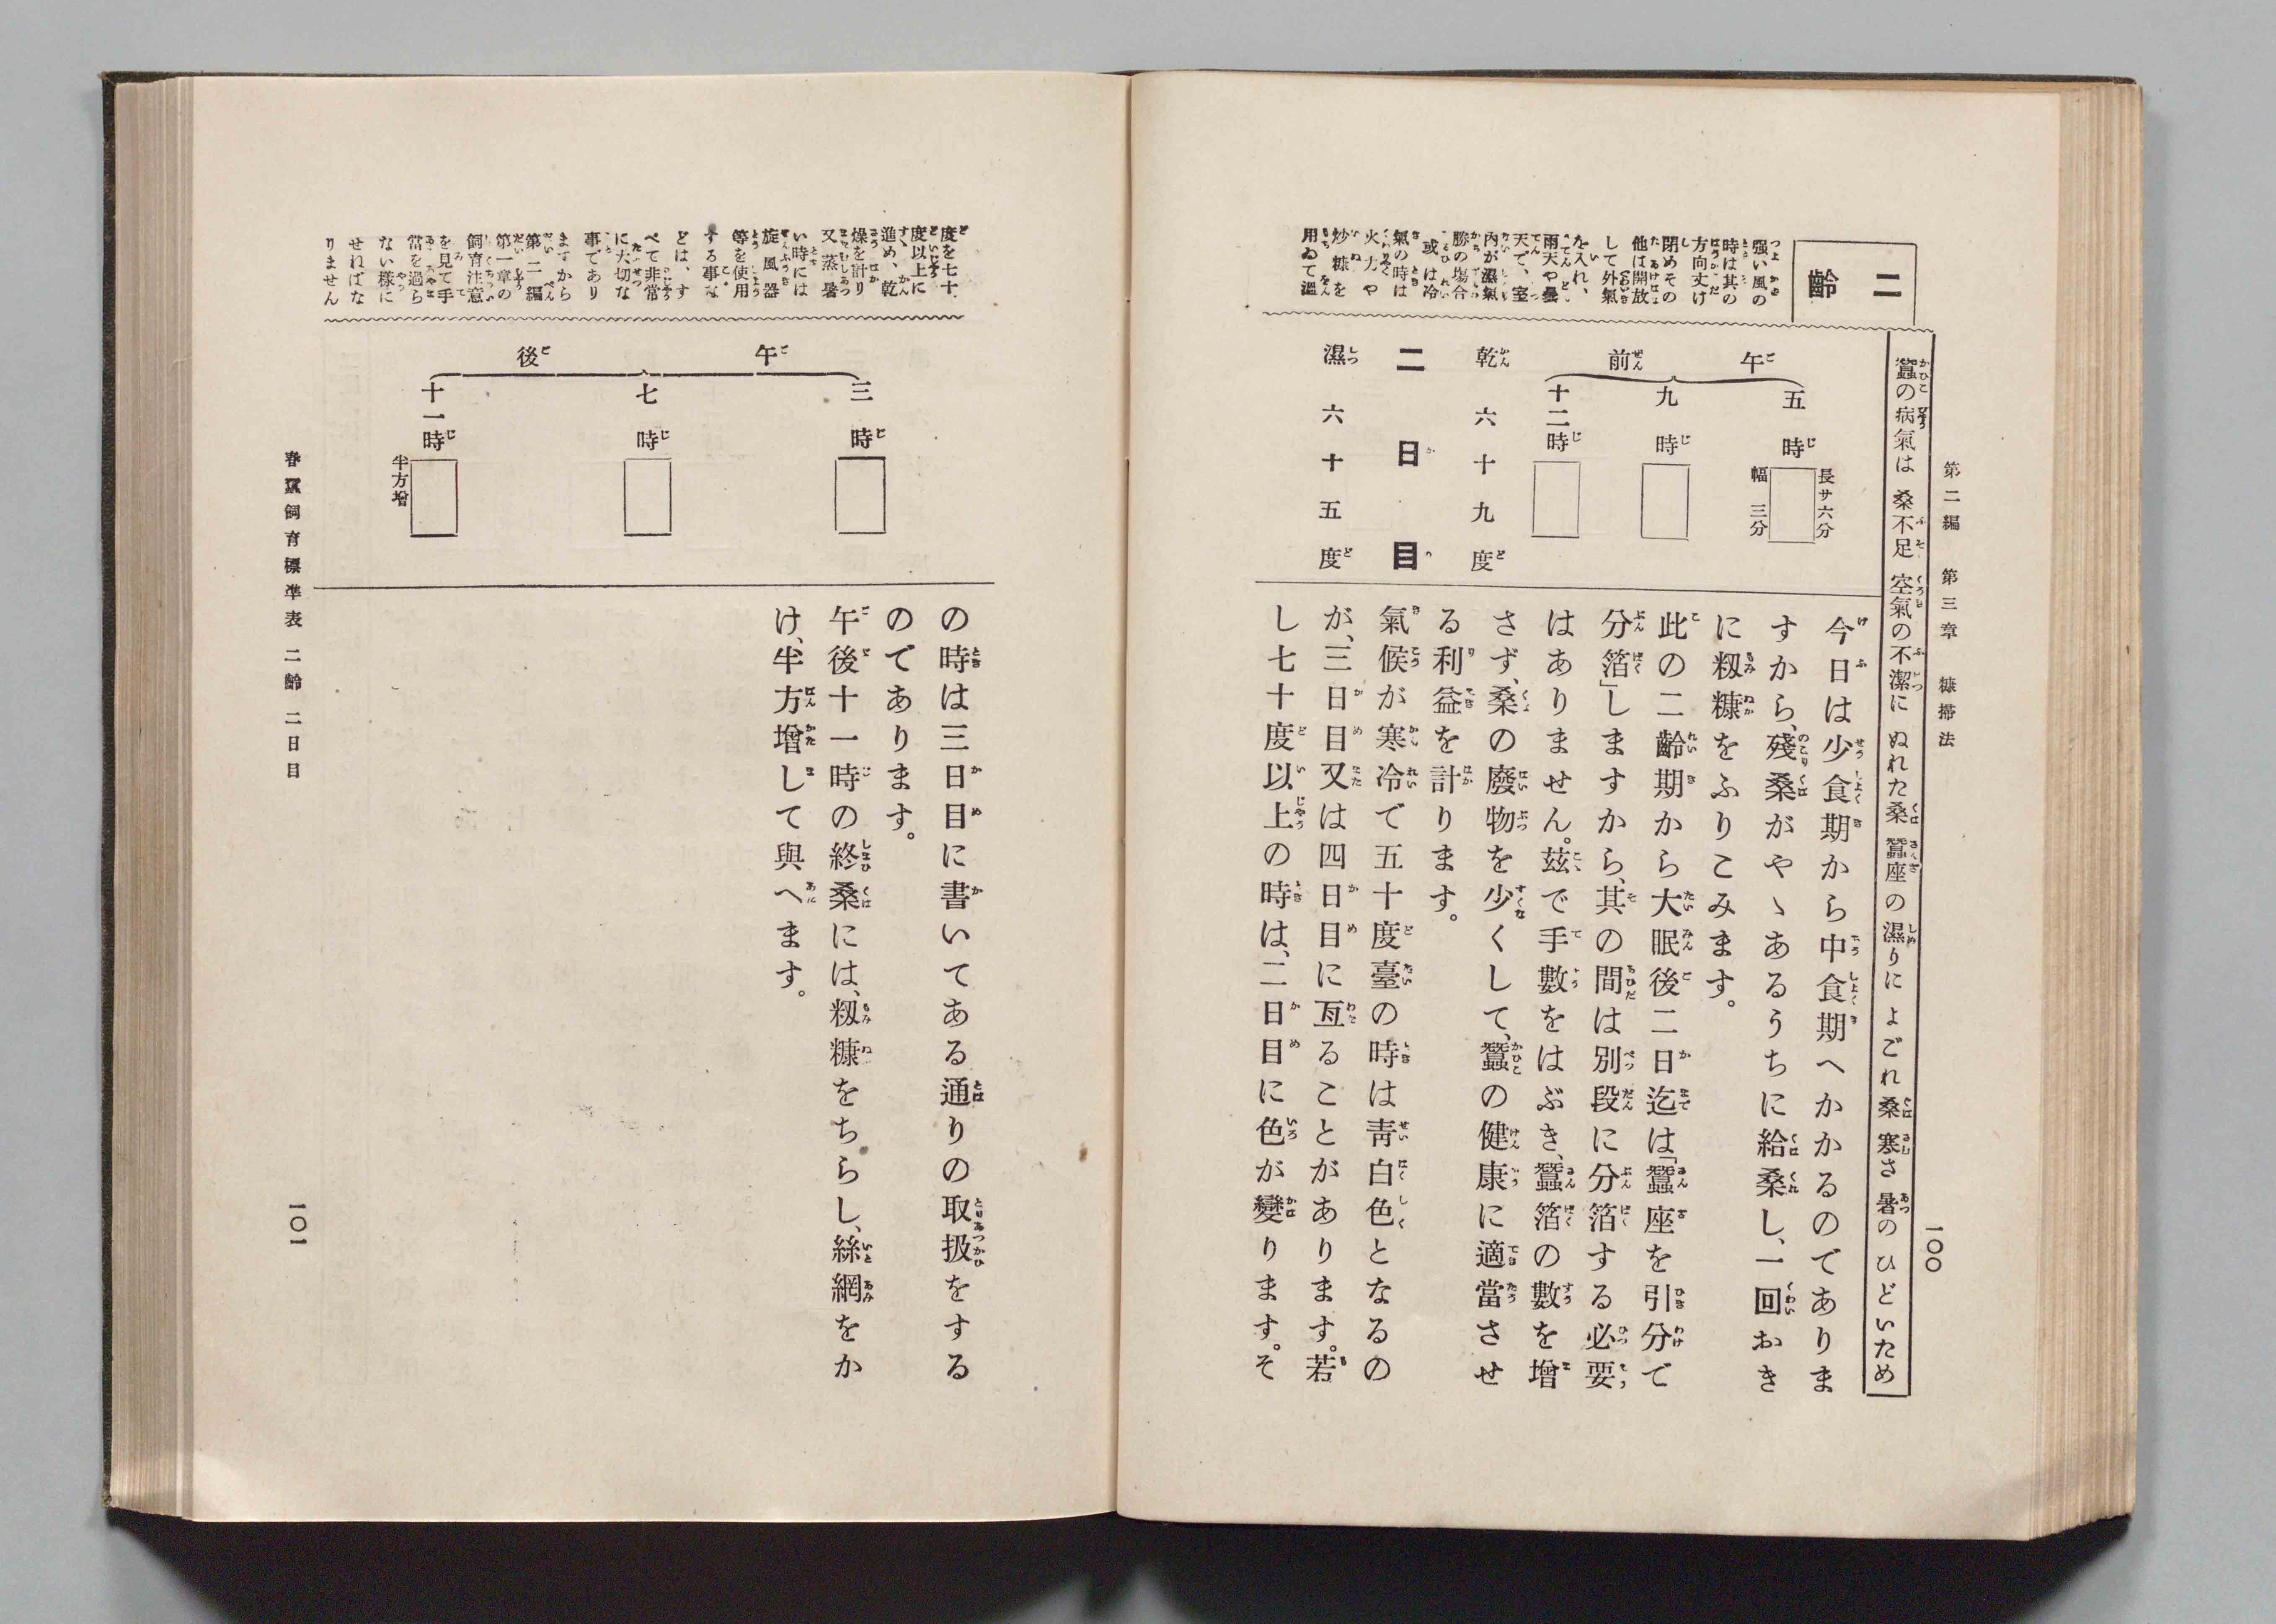 第二編　第三章　糠掃法
一〇〇
蠶の病氣は　桑不足　空氣の不潔に　ぬれた桑　蠶座の濕りに　よごれ桑　寒さ　暑の　ひどいため
二齡
强い風の
時は其の
方向丈け
閉めその
他は開放
して外氣
を入れ、
雨天や曇
天で、室
內が濕氣
勝の塲合
或は冷
氣の時は
火力や
炒糠を
用ゐて溫
午前
五時
長サ六分
幅三分
九時
十二時
乾　六十九度
二日目
濕　六十五度
今日は少食期から中食期へかかるのでありま
すから、殘桑がやゝあるうちに給桑し、一回おき
に籾糠をふりこみます。
此の二齡期から大眠後二日迄は「蠶座を引分で
分箔」しますから、其の間は別段に分箔する必要
はありません。玆で手數をはぶき、蠶箔の數を增
さず、桑の廢物を少くして、蠶の健康に適當させ
る利益を計ります。
氣候が寒冷で五十度臺の時は靑白色となるの
が、三日目又は四日目に亙ることがあります。若
し七十度以上の時は、二日目に色が變ります。そ
度を七十
度以上に
進め、乾
燥を計り
又蒸暑
い時には
旋風器
等を使用
する事な
どは、す
べて非常
に大切な
事であり
ますから
第二編
第一章の
飼育注意
を見て手
當を過ら
ない樣に
せねばな
りません
午後
三時
七時
十一時
半方增
の時は三日目に書いてある通りの取扱をする
のであります。
午後十一時の終桑には、籾糠をちらし、絲網をか
け、半方增して與へます。
春蠶飼育標準表　二齡　二日目
一〇一